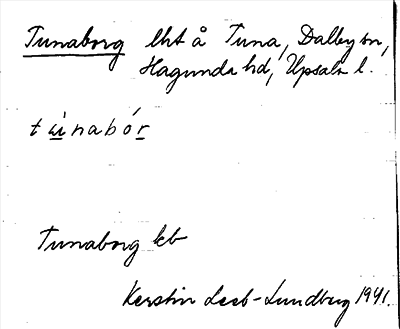 Tunaborg lht å Tuna, Dalby sn,
Hagunda hd, Upsala l.
tu̲i̲nabór̲
Tunaborg kb
Kerstin Leeb-Lundberg 1941.